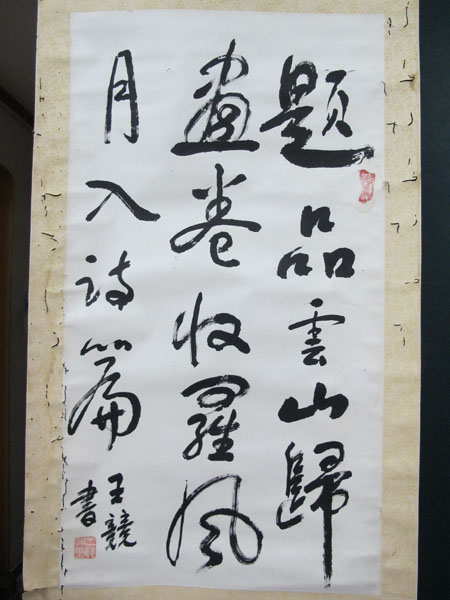 題品雲山歸
畫卷收羅風
月入詩篇
王競
書